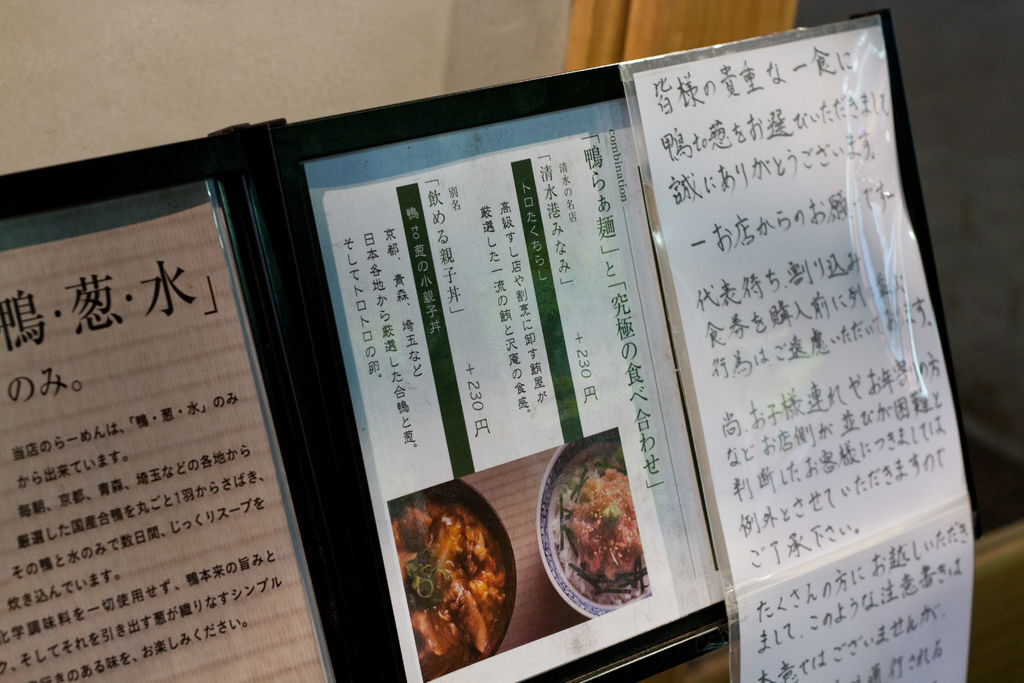 鴨・葱・水」
のみ。
当店のらーめんは、「鴨・葱・水」のみ
から出来ています。
毎朝、京都、青森、埼玉などの各地から
厳選した国産合鴨を丸ごと1羽からさばき、
その鴨と水のみで数日間、じっくりスープを
炊き込んでいます。
化学調味料を一切使用せず、鴨本来の旨みと
ク、そしてそれを引き出す葱が織りなすシンプル
行きのある味を、お楽しみください。
combination
「鴨らぁ麺」と「究極の食べ合わせ」
清水の名店
「清水港みなみ」
トロたくちらし
+230円
高級すし店や割烹に卸す鮪屋が
厳選した一流の鮪と沢庵の食感。
別名
「飲める親子丼」
鴨to葱の小親子丼
+230円
京都、青森、埼玉など
日本各地から厳選した合鴨と葱。
そしてトロトロの卵。
皆様の貴重な一食に
鴨to葱をお選びいただきまして
誠にありがとうございます。
ーお店からのお願いです。
代表待ち、割り込み
食券を購入前に列
行為はご遠慮いただいております。
尚、お子様連れやお年寄の方
などお店側が並びが困難と
判断したお客様につきましては
例外とさせていただきますので
ご了承下さい。
たくさんの方にお越しいただき
まして、このような注意書きは
本意ではございませんが、
通行される